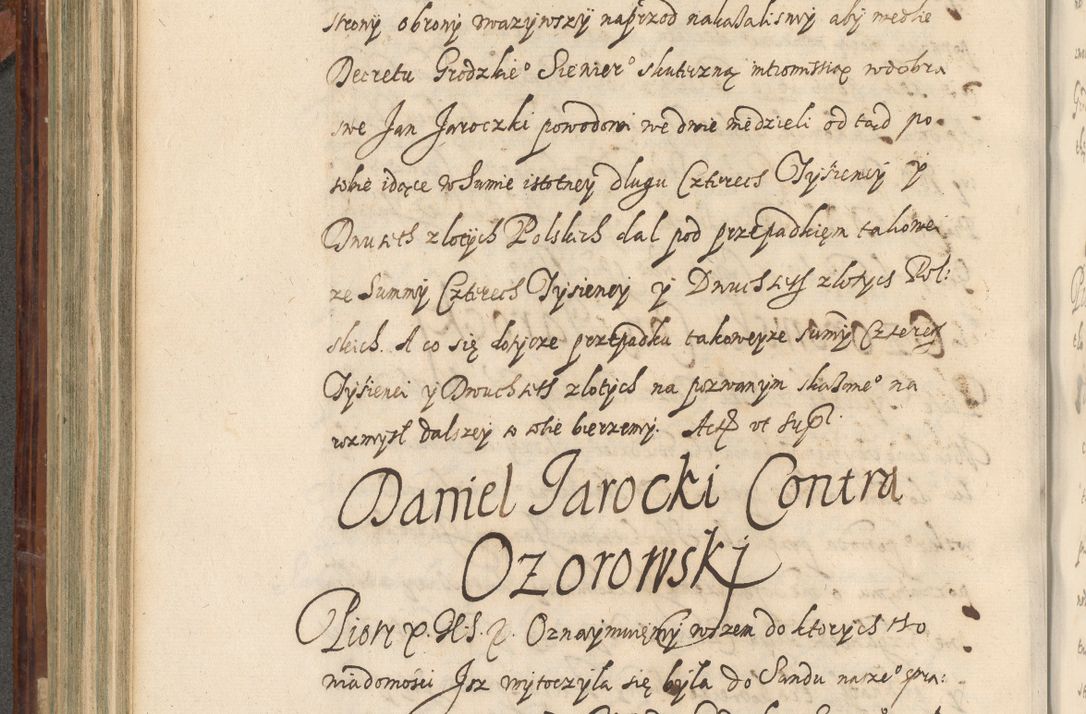 strony obrony uwazywszÿ naprzod nakazalismy aby medle
Decretu Grodzkie° Sienier° skuteczną w dobra
swe Jan Jaroczki powodowi we dwie niedzieli od tąd po
sobie idące w Sumie istotney długu Czterech Tysiency y
Dwuseth zlotÿch Polskich dal pod przepadkięm takowei
ze Summÿ Czterech Tysiency ÿ Dwuchseth zlotych Pol:
skich. A co się dotycze przepadku takoweyze summÿ Czterech
Tysienci y Dwuchseth zlotÿch na pozwanÿm skazane° na
rozmysł dalszey to sobie bierzemy. Act ut supr
Daniel Jarocki Contra
Ozorowskj
Piotr p. H. S. P. Oznaymuięmy wszem do ktorych tho
wiadomości Jsz wytoczyla się była do Sandu nasze° spra: